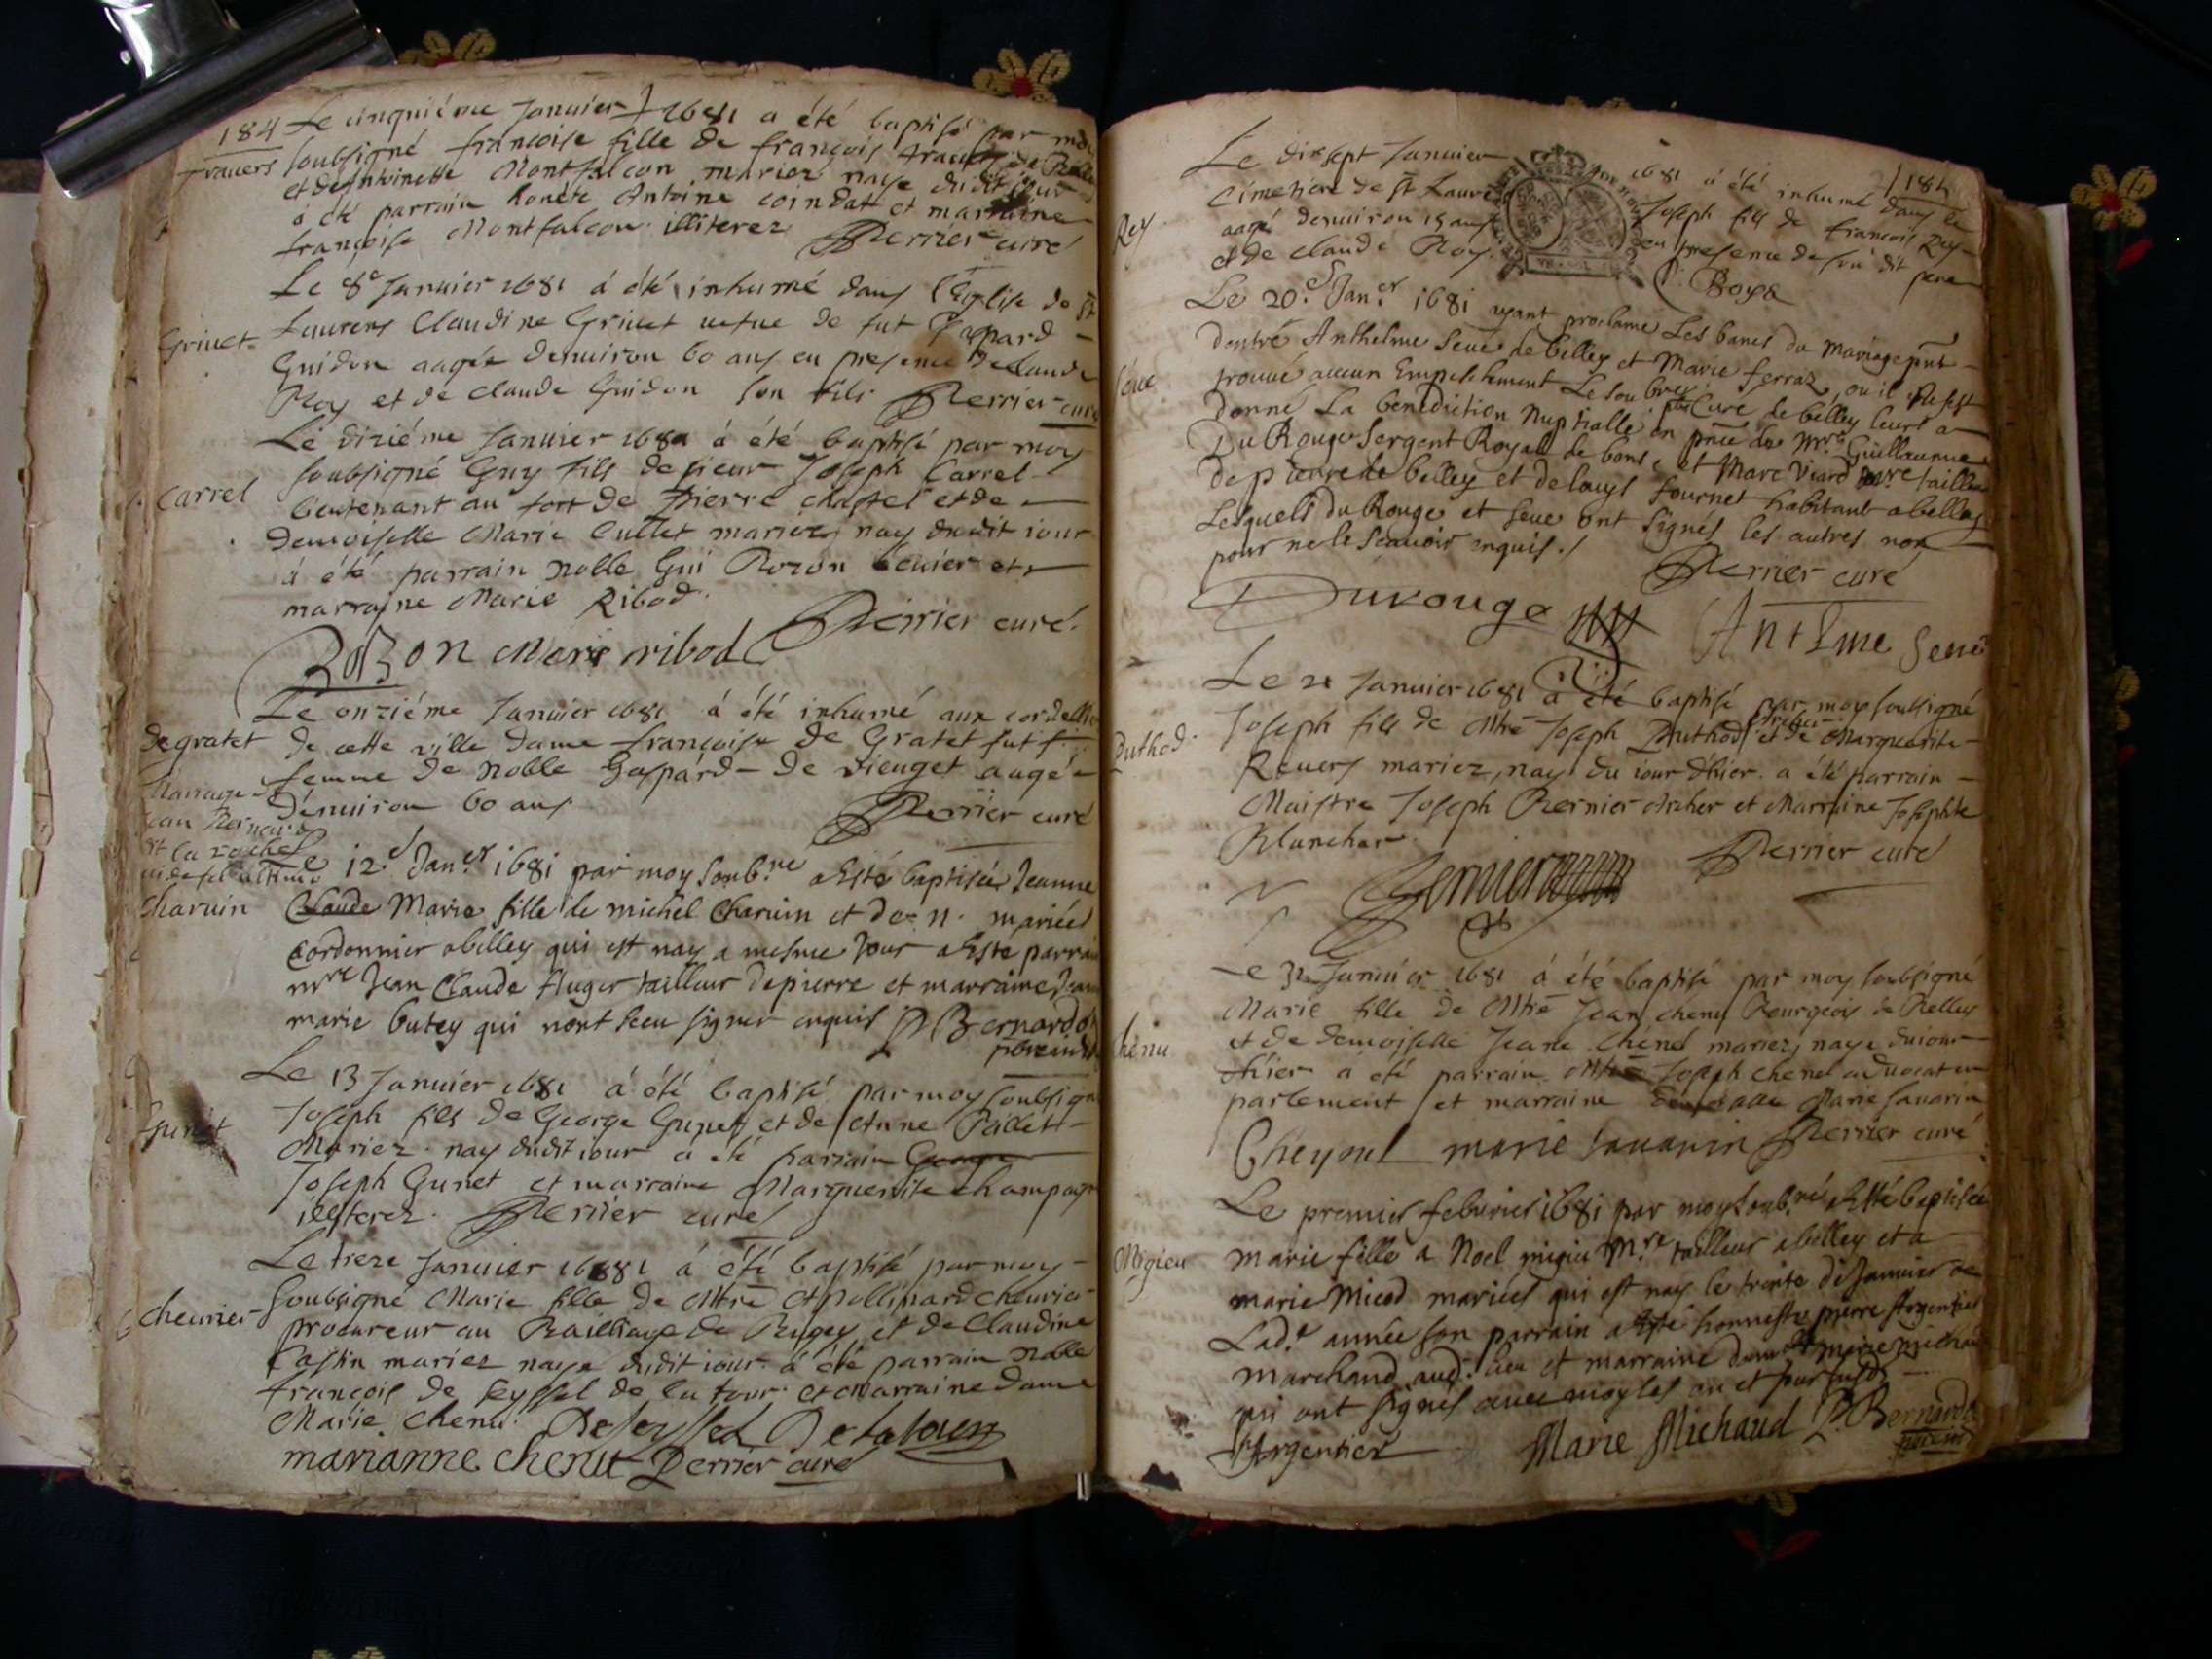 184
Le cinquiéme Januier 1681 a été baptisé par moy
Trauers soubsigné francoise fille de françois
et de Antoinette Montfalcon mariez naye dudit iour
a été parrain honéte Antoine coindat et marraine
françoise Montfalcon illiterez Perrier curé
Le 8e Januier 1681 á été inhumé dans l'Eglise de St
Griuet Laurens Claudine Griuet uefue de fut Gaspard
Guidon aagée denuiron 60 ans en presence de Claude
Roy et de Claude Guidon son fils Perrier curé
Le diziéme Januier 1681 á été baptisé par moy
soubsigné Guy fils de sieur Joseph Carrel
Carrel lieutenant au fort de Pierre chastel et de
demoiselle Marie Cullet mariez nay dudit iour
á été parrain noble Gui Rozon écuier et
marraine Marie Ribod.
Perrier curé.
Rozon Marie ribod
Le onziéme Januier 1681 á été inhumé aux cordeliers
degratet de cette ville dame françoise de Gratet fut
femme de noble Gaspard de Dieuget aagée
denuiron 60 ans.
Perrier curé
Mariage de
Jean Bernard
dit la roche
Le 12e Janer 1681 par moy soub.né a Esté baptisée Jeanne
Charuin Claude Marie fille de michel Charuin et de n. mariés
Cordonnier abelley qui est nay a mesme Jour a Este parrain
mre Jean Claude Auger tailleur depierre et marraine Jeanne
marie butey qui nont sceu signer enquis P Bernardo
Le 13 Januier 1681 á été baptisé par moy soubsigné
Gunet Joseph fils de George Gunet et de Anne Pallet
Mariez nay dudit iour a été parrain George
Joseph Gunet et marraine Marguerite champagne
illiterez. Perrier curé
Le treze Januier 1681 á été baptisé par moy
Cheurier soubsigné Marie fille de Mtre Apollinard cheurier
procureur au Bailliage de Bugey et de Claudine
Castin mariez naye dudit iour á été parrain noble
françois de seyssel de la tour et marraine dame
Marie Chenu. Deseyssel Delatour
marianne chenu Perrier curé
184
Le disept Januier 1681 á été inhumé dans le
Cimetiére de St Laurens Joseph fils de francois Rey
Rey aagé denuiron 15 ans en presence de son dit pere
et de Claude Roy. Boysa
Le 20.e Jan.er 1681 ayant proclame Les bancs du Mariage
Seue dentre Anthelme Seue de belley et Marie ferraz, ou il
trouué aucun Empeschement Le soubné Curé de belley leurs a
donné La benediction Nuptialle en pnce de Mre Guillaume
Du Rouge Sergent Royal de bons, et Marc Viard mre tailleur
de pierre de belley et de louys fournet habitant abelley
Lesquels Du Rouge et seue ont signés les autres non
pour ne le scauoir enquis./
Perrier curé
Durouge Antelme Seue
Le 21 Januier 1681 a été baptisé par moy soubsigné
Duthod. Joseph fils de Mtre Joseph Duthod et de Marguerite
Reuers mariez, nay du iour dhier. a été parrain
Maistre Joseph Bernier Archer et Marraine Josephte
Blanchar.
Perrier curé
Bernier
Le 31 Januier 1681 á été baptisé par moy soubsigné
Marie fille de Mtre Jean chenu Bourgeois de Belley
Chenu et de demoiselle Jeane Chénel mariez, naye du iour
dhier a été parrain Mtre Joseph chenel aduocat en
parlement et marraine demoiselle Marie sauarin
Cheynel marie sauarin Perrier curé
Le premier feburier 1681 par moy soub.né a Esté baptisée
Migieu marie fille a Noel migieu M.re tailleur abelley et a
marie Micod mariés qui est nay le trente de Januier de
Lad.e année son parrain a Esté honneste pierre Argentier
marchand aud. lieu et marraine dam.lle marie michaud
qui ont signés auec moy les an et jour susd.
Argentier Marie Michaud P. Bernardo